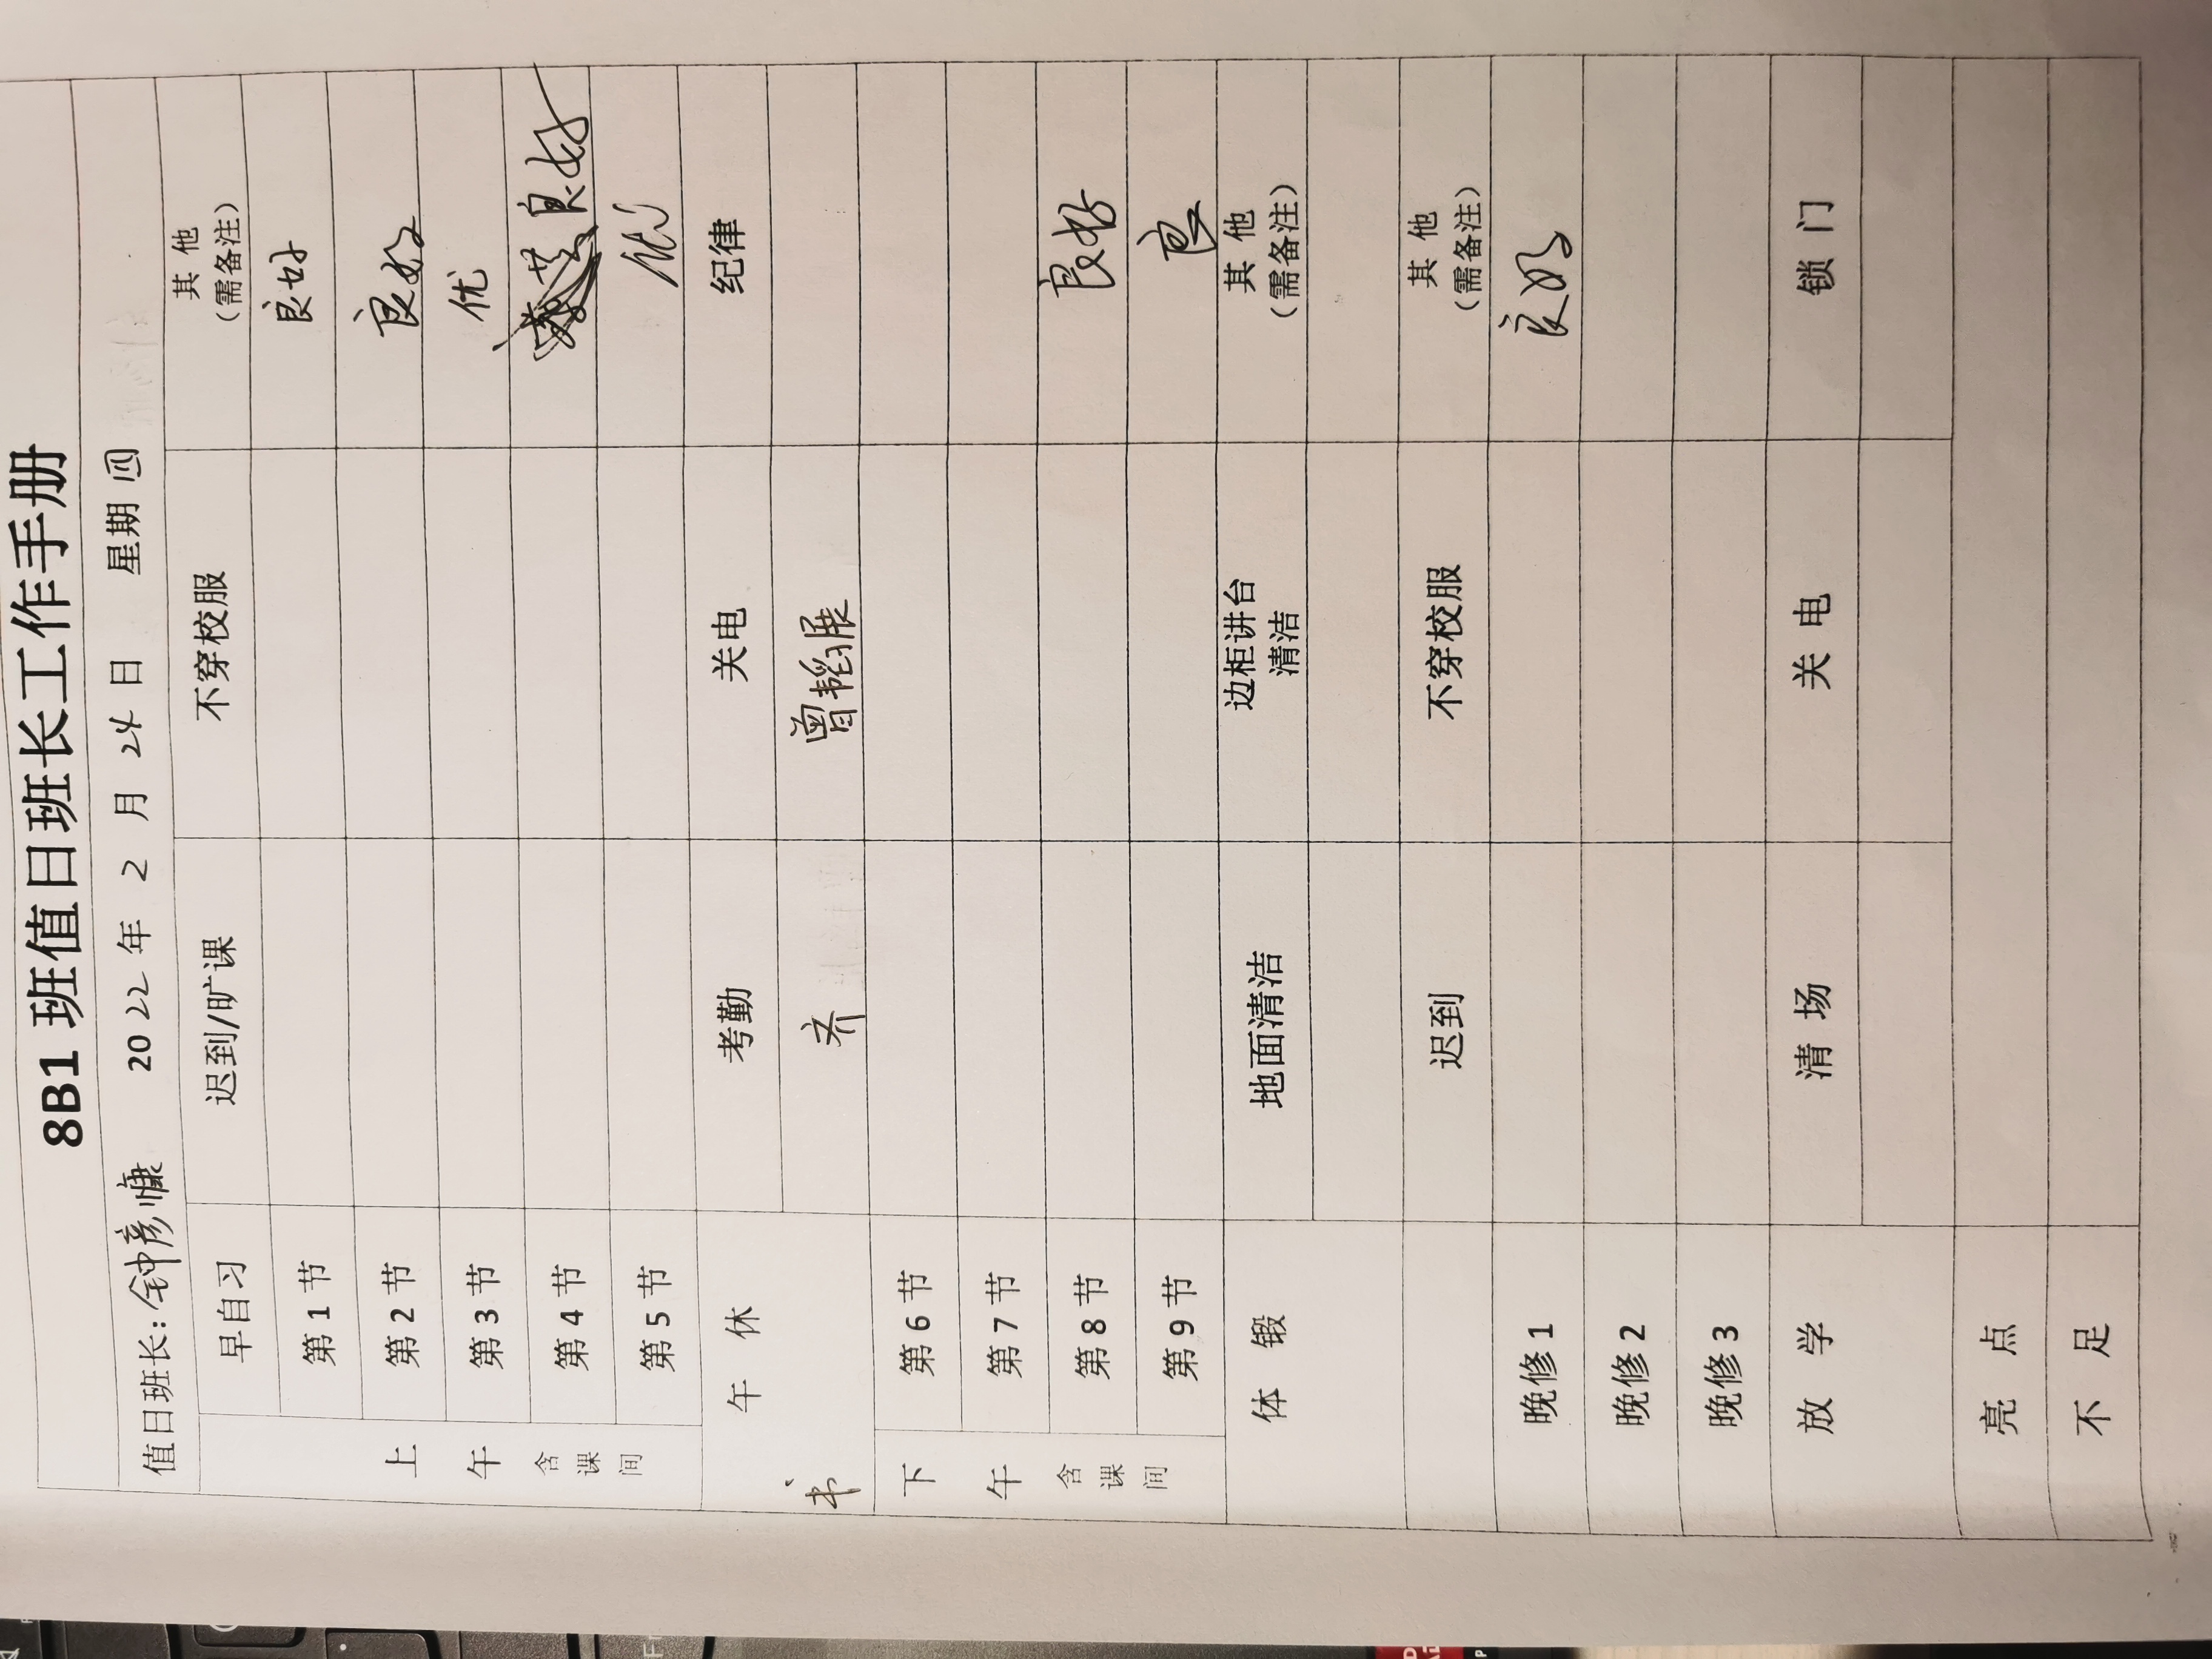 8B1 班值日班长工作手册
值日班长：钟彦慷 2022 年 2 月 24 日 星期 四
早自习 迟到/旷课 不穿校服 其 他
（需备注）
上午 含课间
第 1 节 良好
第 2 节 良好
第 3 节 优
第 4 节 良好
第 5 节 优
午 休 考勤 关电 纪律
齐 曾韬展
下午 含课间
第 6 节
第 7 节
第 8 节 良好
第 9 节 良
体 锻 地面清洁 边柜讲台 其 他
清洁 （需备注）
迟到 不穿校服 其 他
（需备注）
晚修 1 良好
晚修 2
晚修 3
放 学 清 场 关 电 锁 门
亮 点
不 足